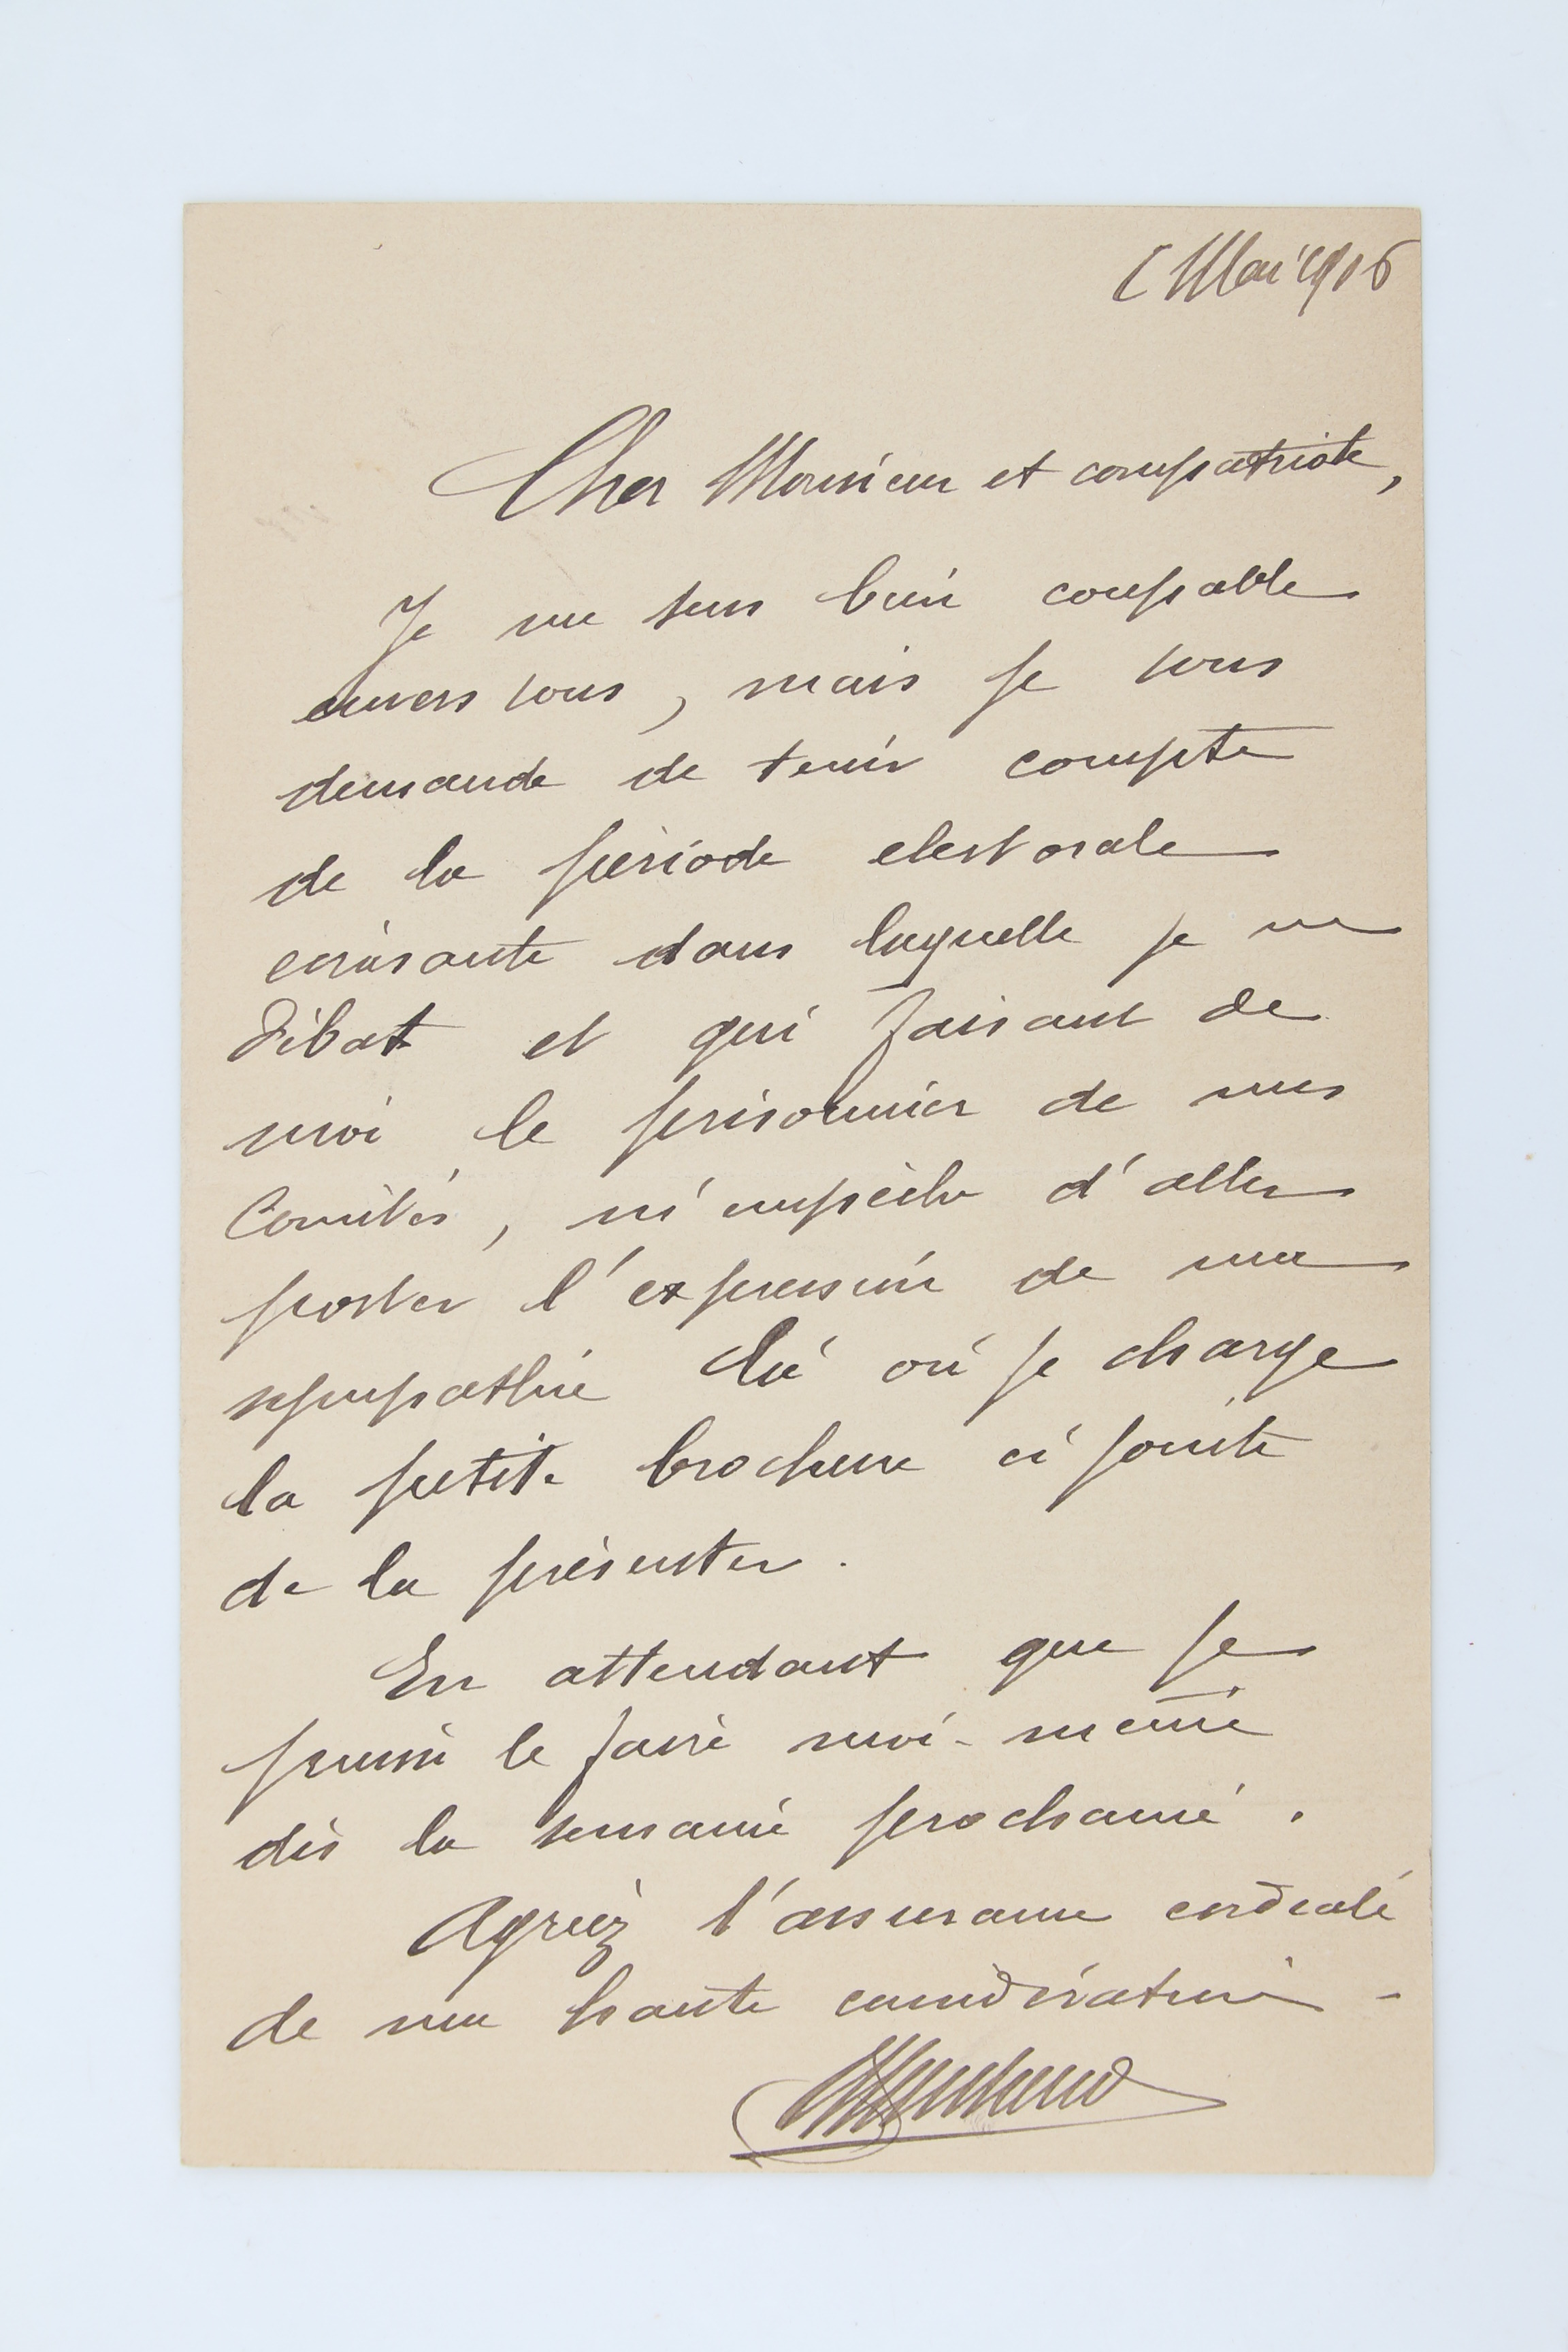 Mai 1906
Cher Monsieur et compatriote,
Je me sens bien coupable
envers vous, mais je vous
demande de tenir compte
de la période electorale
écrasante dans laquelle je me
débat et qui faisant de
moi le prisonnier de mes
Comités, m'empêche d'aller
porter l'expression de ma
sympathie là où je charge
la petite brochure ci jointe
de la présenter.
En attendant que je
puisse le faire moi-même
dès la semaine prochaine.
Agréez l'assurance cordiale
de ma haute considération -